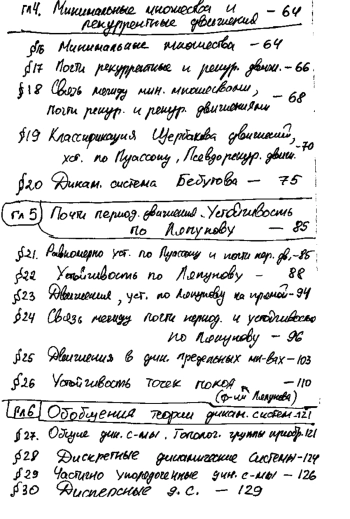 гл4. Минимальные множества и — 64
рекуррентные движения
§16 Минимальные множества — 64
§17 Почти рекуррентные и рекур. движ. — 66
§18 Связь между мин. множествами,
почти рекур. и рекур. движениями — 68
§19 Классификация Щербакова движений,
уст. по Пуассону, Псевдорекур. движ. — 70
§20 Динам. система Бебутова — 75
гл 5 Почти период. движения. Устойчивость
по Ляпунову — 85
§21. Равномерно уст. по Пуассону и почти пер. дв. — 85
§22 Устойчивость по Ляпунову — 88
§23 Движения, уст. по Ляпунову на прямой — 94
§24 Связь между почти период. и устойчивостью
по Ляпунову — 96
§25 Движения в дин. предельных мн-вах — 103
§26 Устойчивость точек покоя — 110
(ф-ии Ляпунова)
Гл 6 Обобщения теории динам. систем — 121
§27. Общие дин. с-мы. Тополог. группы преобр. 121
§28 Дискретные динамические системы — 124
§29 Частично упорядоченные дин. с-мы — 126
§30 Дисперсные д. с. — 129